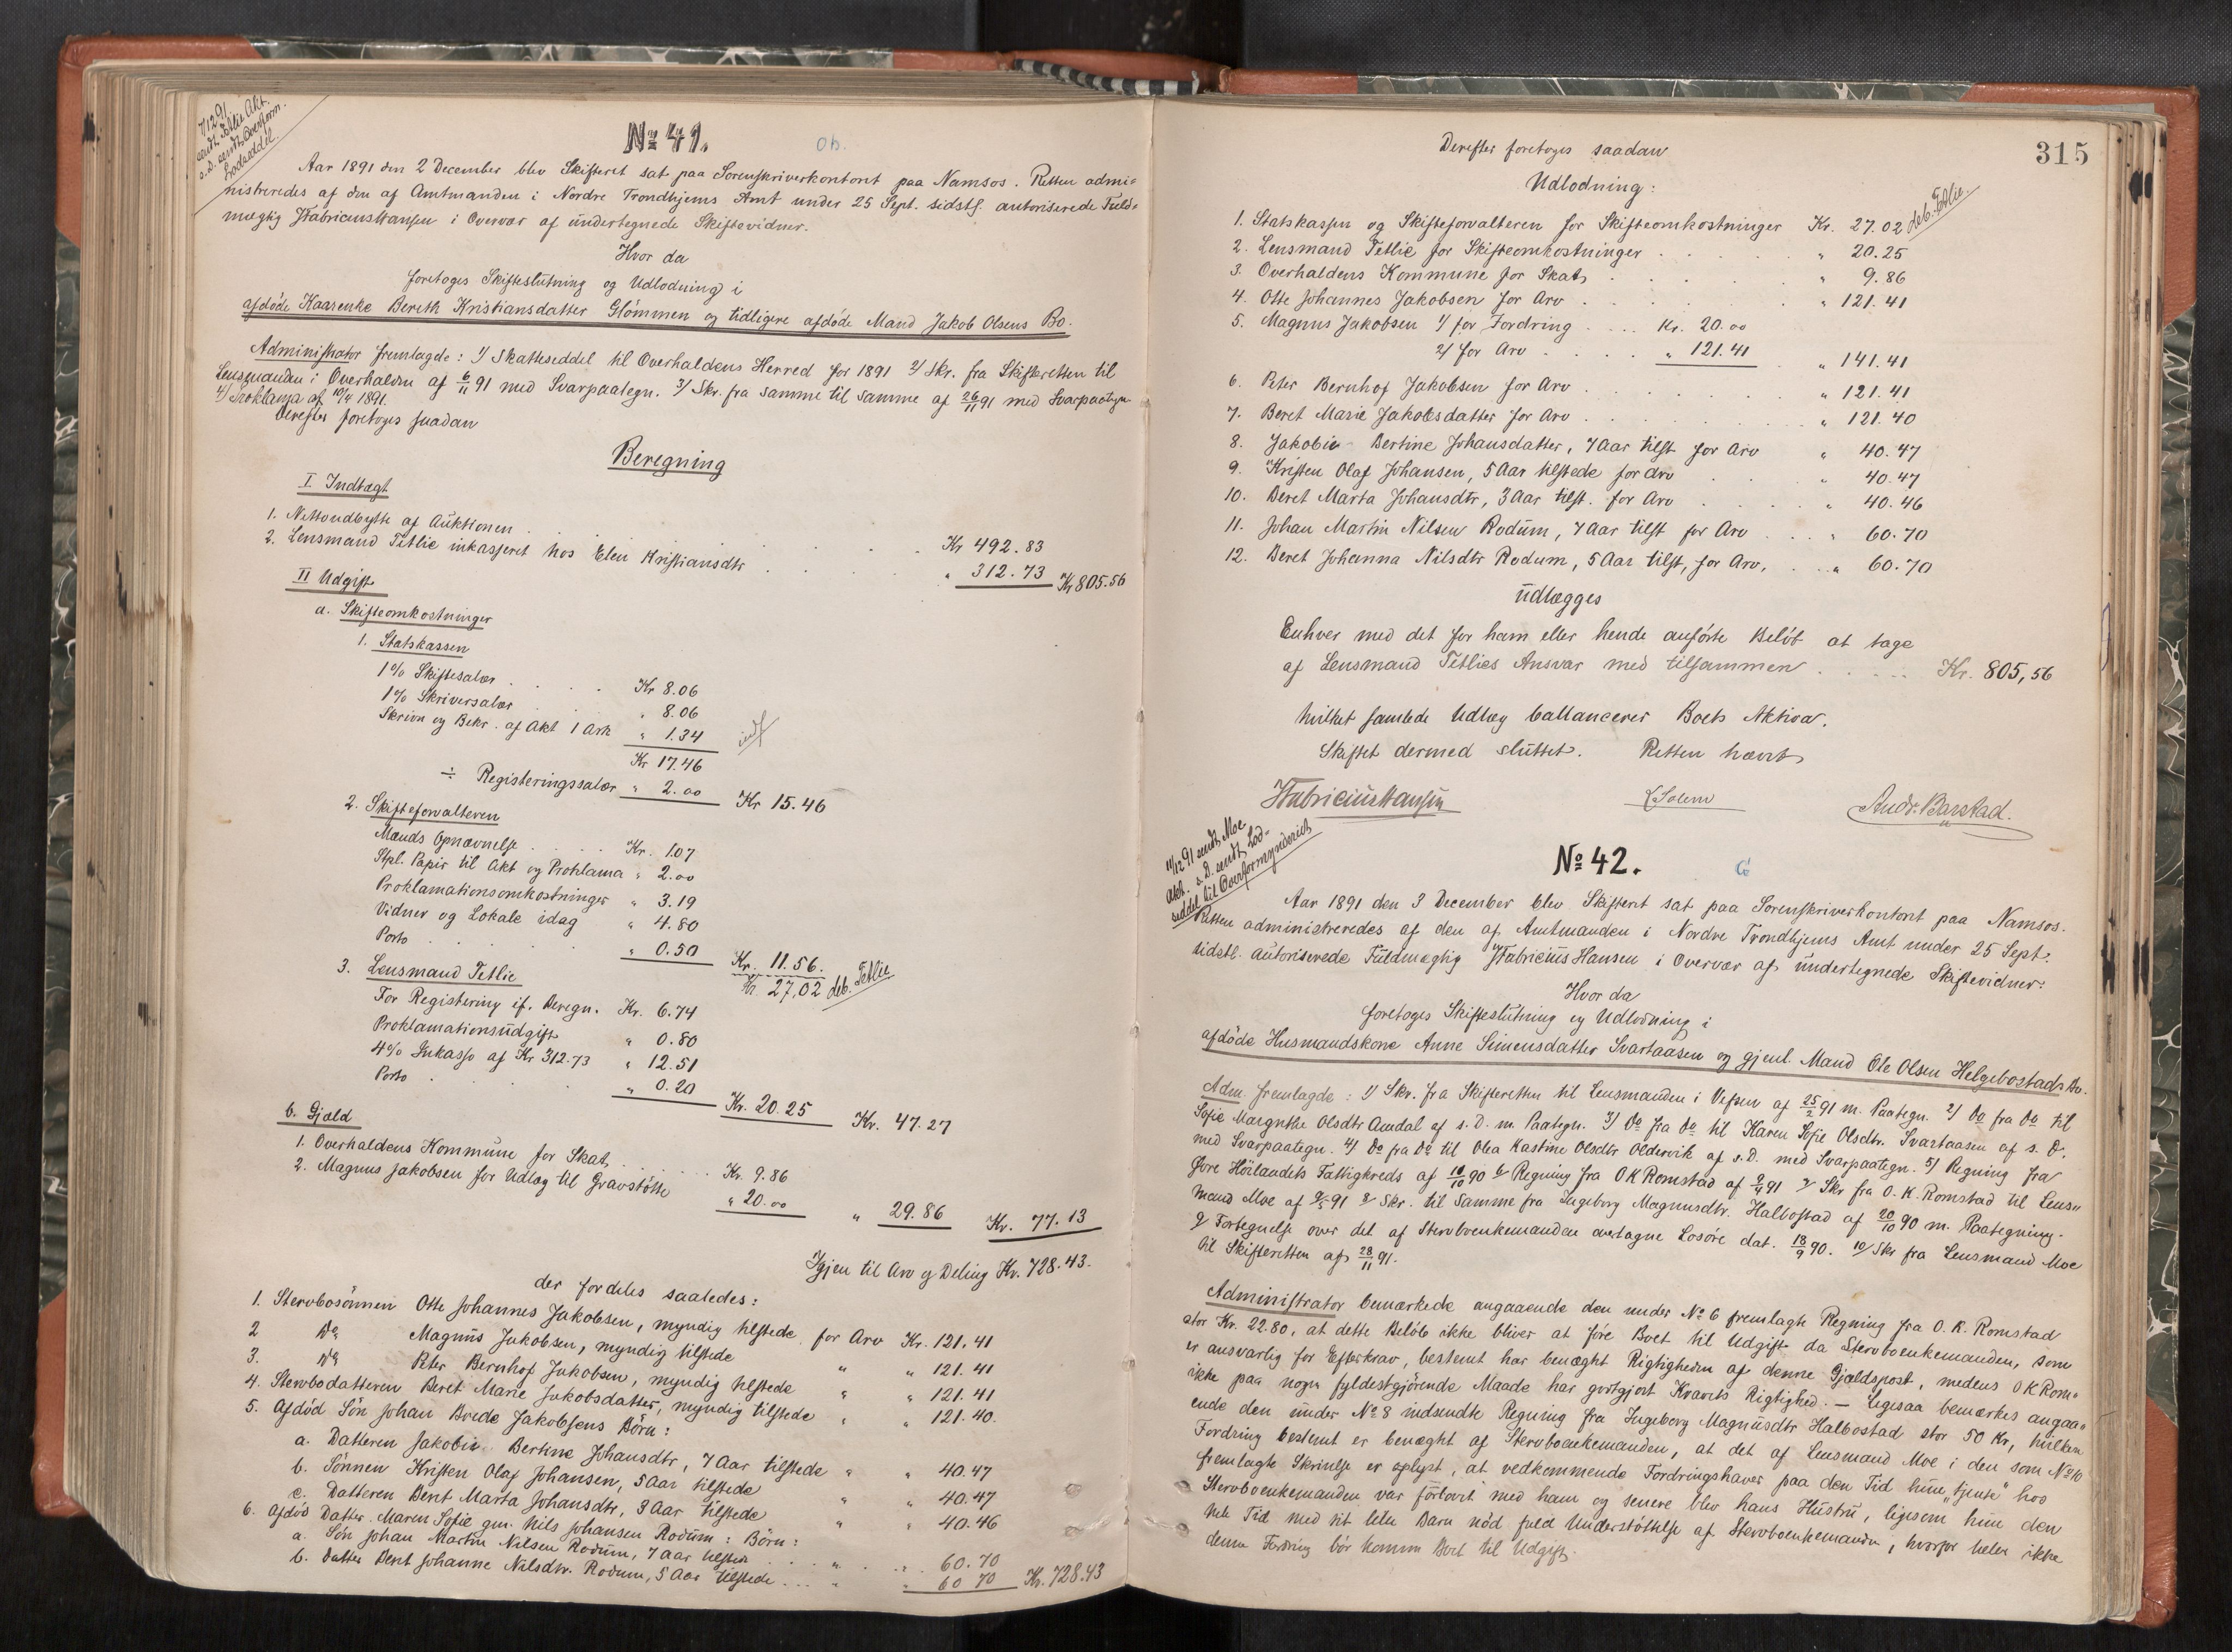 7/12 91
sendt Tetlie Akt.
s. D. sendt Overform.
Lodseddel.
No 41.
Ob.
Aar 1891 den 2 December blev Skifteret sat paa Sorenskriverkontoret paa Namsos. Retten admi-
nistreredes af den af Amtmanden i Nordre Trondhjems Amt under 25 Sept. sidstl. autoriserede Fuld-
mægtig Fabricius Hansen i Overvær af undertegnede Skiftevidner.
Hvor da
foretoges Skifteslutning og Udlodning i
afdöde Kaarenke Bereth Kristiansdatter Glömmen og tidligere afdöde Mand Jakob Olsens Bo.
Administrator fremlagde: 1/ Skatteseddel til Overhaldens Herred for 1891 2/ Skr. fra Skifteretten til
Lensmanden i Overhalden af 6/11 91 med Svarpaategn. 3/ Skr. fra samme til samme af 26/11 91 med Svarpaategn
4/ Proklama af 10/4 1891.
Derefter foretoges saadan
Beregning
I Indtægt
1. Nettoudbytte af Auktionen . . . Kr 492.83
2. Lensmand Tetlie inkasseret hos Elen Kristiansdtr . . . " 312.73 Kr 805.56
II Udgift
a. Skifteomkostninger
1. Statskassen
1% Skiftesalær . . . Kr 8.06
1% Skriversalær " 8.06
Skrivn og Bekr. af Akt 1 Ark " 1.34
Kr 17.46
÷ Registeringssalær " 2.00 Kr 15.46
2. Skifteforvalteren
Mænds Opnævnelse . . . Kr. 1.07
Stpl. Papir til Akt og Proklama " 2.00
Proklamationsomkostninger " 3.19
Vidner og Lokale idag " 4.80
Porto . . . " 0.50 Kr. 11.56.
Kr. 27,02 deb. Tetlie
3. Lensmand Tetlie
For Registering if. Beregn. Kr. 6.74
Proklamationsudgift " 0.80
4% Inkasso af Kr 312.73 " 12.51
Porto . . . " 0.20 Kr. 20.25 Kr. 47.27
b. Gjæld
1. Overhaldens Kommune for Skat . . . Kr. 9.86
2. Magnus Jakobsen for Udlæg til Gravstötte " 20.00 " 29.86 Kr. 77.13
Igjen til Arv og Deling Kr. 728.43.
der fordeles saaledes:
1. Stervbosönnen Otte Johannes Jakobsen, myndig tilstede for Arv Kr. 121.41
2 Do Magnus Jakobsen, myndig tilstede " " 121.41
3. Do Peter Bernhof Jakobsen, myndig tilstede " " 121.41
4. Stervbodatteren Beret Marie Jakobsdatter, myndig tilstede " " 121.40.
5. Afdöd Sön Johan Brede Jakobsens Börn:
a. Datteren Jakobie Bertine Johansdtr, 7 Aar tilstede " " 40.47
b. Sönnen Kristen Olaf Johansen, 5 Aar tilstede " " 40.47
c. Datteren Beret Marta Johansdtr, 3 Aar tilstede " " 40.46
6. Afdöd Datter Maren Sofie gm. Nils Johansen Rodum: Börn:
a. Sön Johan Martin Nilsen Rodum, 7 Aar tilstede . . . " 60.70
b. Datter Beret Johanne Nilsdtr. Rodum, 5 Aar tilstede . . . " 60 70 Kr. 728.43
315
Derefter foretoges saadan
Udlodning:
1. Statskassen og Skifteforvalteren for Skifteomkostninger Kr. 27.02 deb. Tetlie.
2. Lensmand Tetlie for Skifteomkostninger . . . " 20.25
3. Overhaldens Kommune for Skat . . . " 9.86
4. Otte Johannes Jakobsen for Arv . . . " 121.41
5. Magnus Jakobsen 1/ for Fordring . . . Kr. 20.00
2/ for Arv . . . " 121.41 " 141.41
6. Peter Bernhof Jakobsen for Arv . . . " 121.41
7. Beret Marie Jakobsdatter for Arv . . . " 121.40
8. Jakobie Bertine Johansdatter, 7 Aar tilst for Arv " 40.47
9. Kristen Olaf Johansen, 5 Aar tilstede for Arv " 40.47
10. Beret Marta Johansdtr, 3 Aar tilst. for Arv . . . " 40.46
11. Johan Martin Nilsen Rodum, 7 Aar tilst for Arv . . . " 60.70
12. Beret Johanna Nilsdtr Rodum, 5 Aar tilst, for Arv. . . . " 60.70
udlægges
Enhver med det for ham eller hende anförte Belöb at tage
af Lensmand Tetlies Ansvar med tilsammen . . . Kr. 805,56
hvilket samlede Udlæg ballancerer Boets Aktiva.
Skiftet dermed sluttet. Retten hævet
Fabricius Hansen Solem Andr. Barstad.
11/12 91 sendt Moe
Akt. s. D. sendt Lod-
seddel til Overformynderiet
No 42.
G
Aar 1891 den 3 December blev Skifteret sat paa Sorenskriverkontoret paa Namsos.
Retten administreredes af den af Amtmanden i Nordre Trondhjems Amt under 25 Sept.
sidstl. autoriserede Fuldmægtig Fabricius Hansen i Overvær af undertegnede Skiftevidner.
Hvor da
foretoges Skifteslutning og Udlodning i
afdöde Husmandskone Anne Simensdatter Svartaasen og gjenl. Mand Ole Olsen Helgebostads Bo.
Adm. fremlagde: 1/ Skr. fra Skifteretten til Lensmanden i Vefsen af 25/2 91 m. Paategn. 2/ Do fra Do til
Sofie Margrethe Olsdtr Aandal af s. D. m. Paategn. 3/ Do fra Do til Karen Sofie Olsdtr. Svartaasen af s. D.
med Svarpaategn. 4/ Do fra Do til Olea Kastine Olsdtr Oldervik af s. D. med Svarpaategn. 5/ Regning fra
Höilandets Fattigkreds af 10/10 90 6/ Regning fra O K Romstad af 9/4 91 7/ Skr fra O. K. Romstad til Lens-
mand Moe af 9/5 91 8/ Skr. til Samme fra Ingeborg Magnusdtr. Halbostad af 20/10 90 m. Paategning.
9/ Fortegnelse over det af Stervboenkemanden overtagne Losöre dat. 18/9 90. 10/ Skr fra Lensmand Moe
til Skifteretten af 28/11 91.
Administrator bemærkede angaaende den under No 6 fremlagte Regning fra O. K. Romstad
stor Kr. 22.80, at dette Belöb ikke bliver at före Boet til Udgift da Stervboenkemanden, som
er ansvarlig for Efterkrav, bestemt har benægtet Rigtigheden af denne Gjældspost, medens O K Rom-
ikke paa nogen fyldestgjörende Maade har godtgjort Kravets Rigtighed. — Ligesaa bemærkes angaa-
ende den under No 8 indsendte Regning fra Ingeborg Magnusdtr Halbostad stor 50 Kr, hvilken
Fordring bestemt er benægtet af Stervboenkemanden, at det af Lensmand Moe i den som No 10
fremlagte Skrivelse er oplyst, at vedkommende Fordringshaver paa den Tid hun "tjente" hos
Stervboenkemanden var forlovet med ham og senere blev hans Hustru, ligesom hun den
hele Tid med sit lille Barn nöd fuld Understöttelse af Stervboenkemanden, hvorfor heller ikke
denne Fordring bör komme Boet til Udgift.